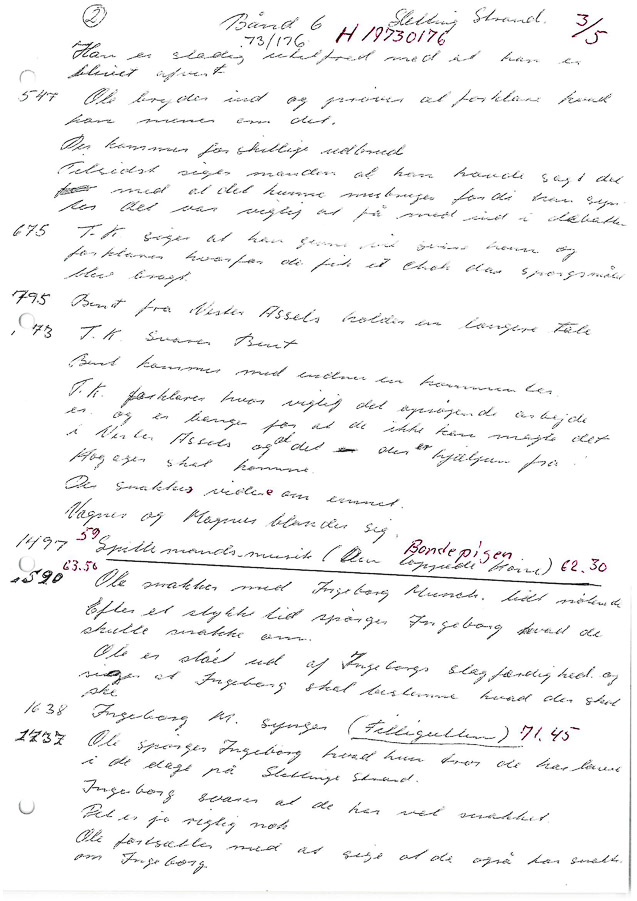 2 Bånd 6 Sletting Strand. 3/5
73/176 H 19730176
Han er stadig utilfred med at han er
blivet afvist
547 Ole bryder ind og prøver at forklare hvad
han mener om det.
Der kommer forskellige udbrud
Tilsidst siger manden at han havde sagt det
med at det kunne misbruges fordi han syn-
tes det var vigtig at få med ind i debatten
675 T.K. siger at han gerne vil svare ham og
forklarer hvorfor de fik et chok da spørgsmålet
blev bragt.
795 Bent fra Vester Assels holder en længere tale
73 T.K. svarer Bent
Bent kommer med endnu en kommentar.
T.K. forklarer hvor vigtig det opsøgende arbejde
er og er bange for at de ikke kan magte det
i Vester Assels og at det er der hjælpen fra
skal komme.
Der snakkes videre om emnet.
Vagner og Magnus blander sig.
1497 59 Spillemands-musik (Den toppede Høne) Bondepigen 62.30
1590 63.50 Ole snakker med Ingeborg Munch. lidt
Efter et stykke tid spørger Ingeborg hvad de
skulle snakke om.
Ole er slået ud af Ingeborgs slagfærdighed og
siger at Ingeborg skal bestemme hvad der skal
ske
1638 Ingeborg M. synger (Fillegutten) 71.45
1737 Ole spørger Ingeborg hvad hun tror de har lavet
i de dage på Slettinge Strand.
Ingeborg svarer at de har vel snakket
Det er jo rigtig nok
Ole fortsætter med at sige at de også har snakket
om Ingeborg.